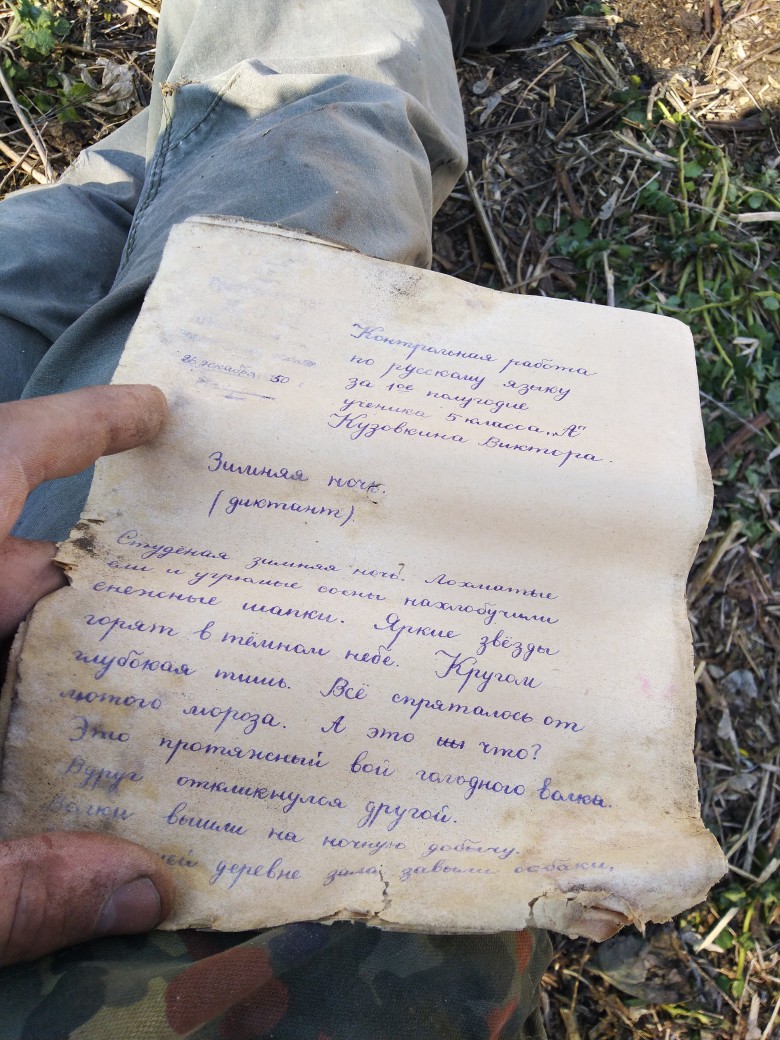 26 декабря 50
Контрольная работа
по русскому языку
за 1ое полугодие
ученика 5 класса „А"
Кузовкина Виктора.
Зимняя ночь.
(диктант)
Студёная зимняя ночь. Лохматые
ели и угрюмые сосны нахлобучили
снежные шапки. Яркие звёзды
горят в тёмном небе. Кругом
глубокая тишь. Всё спряталось от
лютого мороза. А это что?
Это протяжный вой голодного волка.
Вдруг откликнулся другой.
Волки вышли на ночную добычу.
деревне завыли собаки,